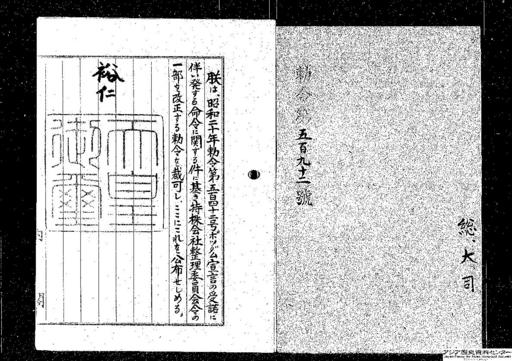 勅令第五百九十二號
総、大、司
朕は、昭和二十年勅令第五百四十二号ポツダム宣言の受諾に
伴い発する命令に関する件に基き持株会社整理委員会令の
一部を改正する勅令を裁可し、ここにこれを公布せしめる。
裕仁
天皇
御璽
アジア歴史資料センター